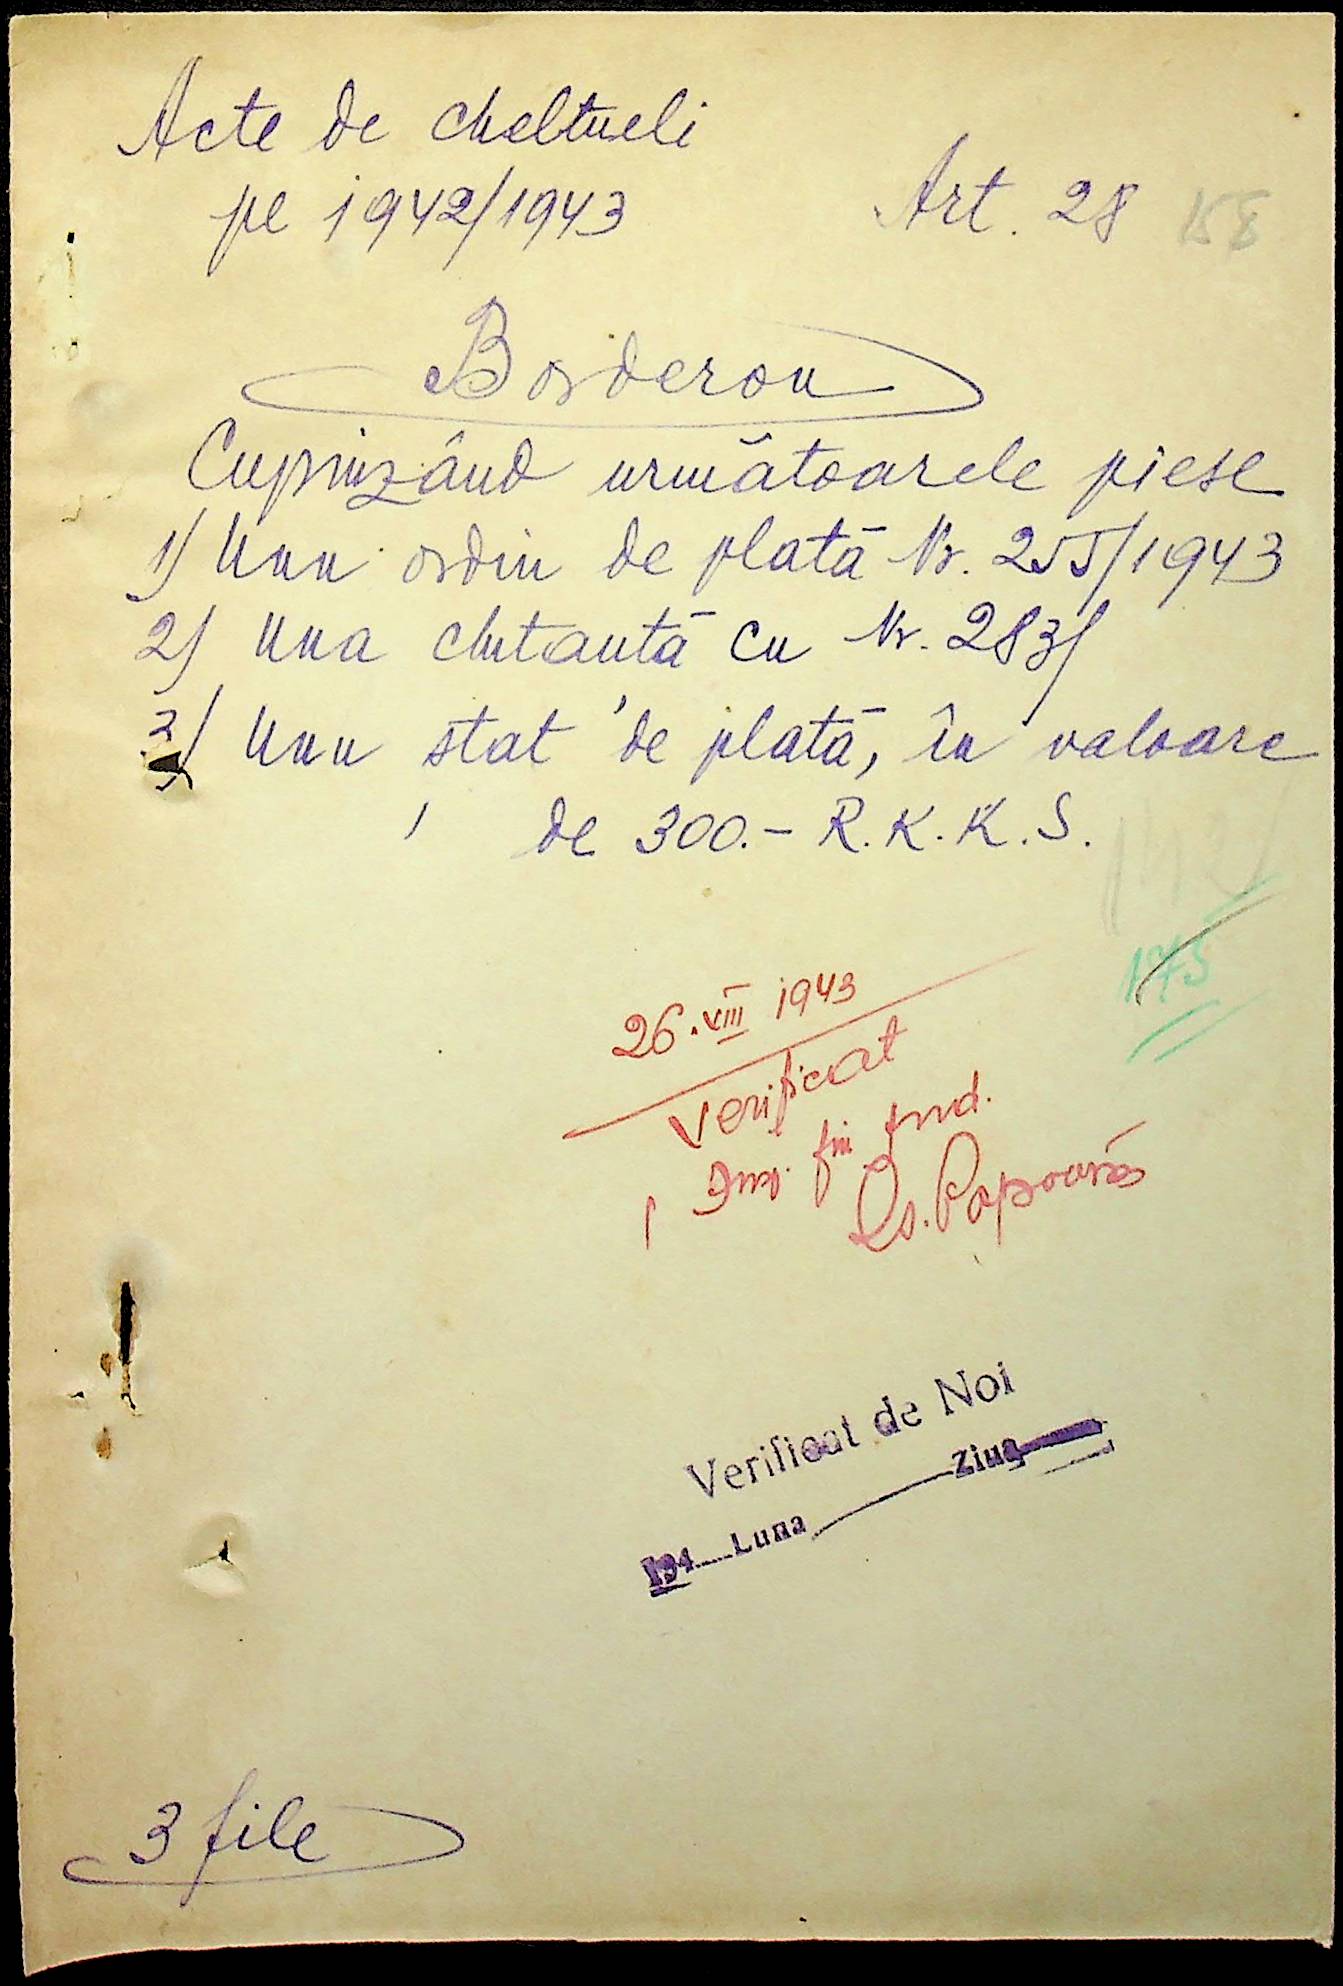 Acte de cheltueli
pe 1942/1943
Art. 28 158
Borderou
Cuprinzând următoarele piese
1/ Unu ordin de plată Nr. 255/1943
2/ Una chitantă cu Nr. 283/
3/ Unu stat de plată, în valoare
de 300.- R.K.K.S.
175
26.VIII 1943
Verificat
fin jud.
Verificat de Noi
194 Luna Ziua
3 file